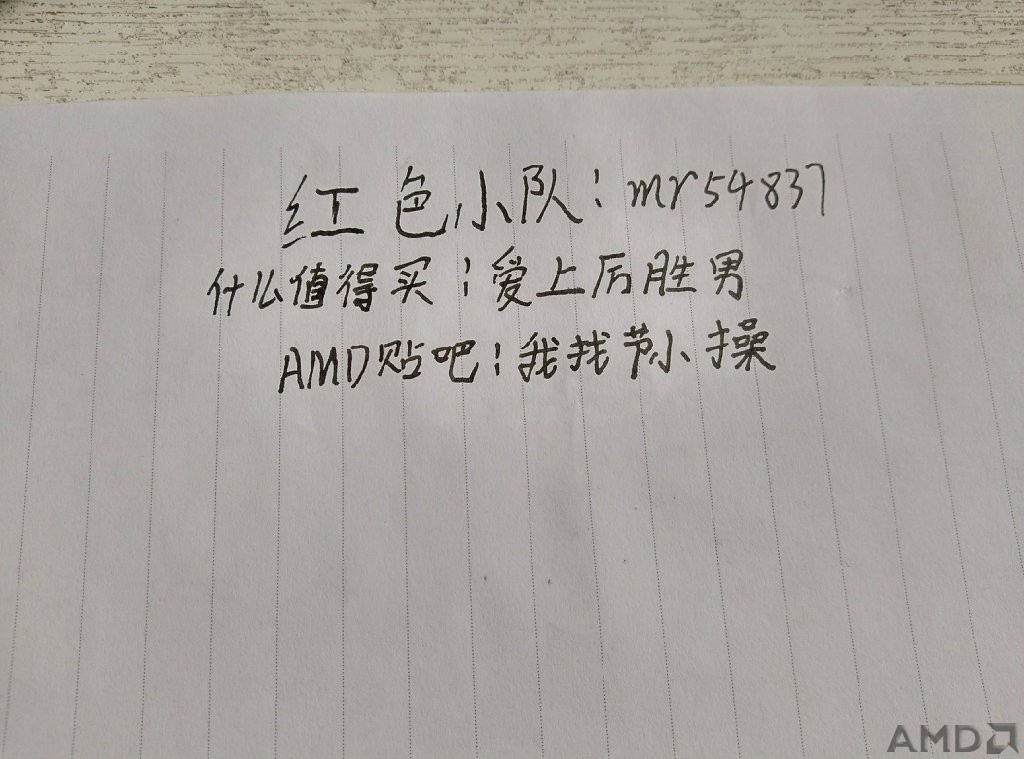 红色小队：mr54837
什么值得买：爱上厉胜男
AMD贴吧：我找节小操
AMD